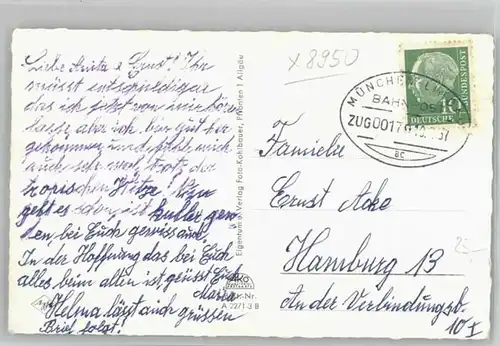 Liebe Anita & Ernst! Ihr
müsst entschuldigen
das ich jetzt von mir hören
lasse aber ich bin gut her
gekommen und fühl mich
auch sehr wohl trotz der
tropischen Hitze!
geht es schon ist kühler gewor
den, bei Euch gewiss auch.
In der Hoffnung das bei Euch
alles beim alten ist grüsst Euch
Maria
Helma läßt auch grüssen
Brief folgt!
x 8950
Eigentum u. Verlag Foto-Kohlbauer, Pfronten i. Allgäu
A 2271-3 B
MÜNCHEN-LI
BAHNPOST
ZUG 0017
ac
10
DEUTSCHE
BUNDESPOST
Familie
Ernst Acke
Hamburg 13
An der Verbindungsb.
10 I
2,-